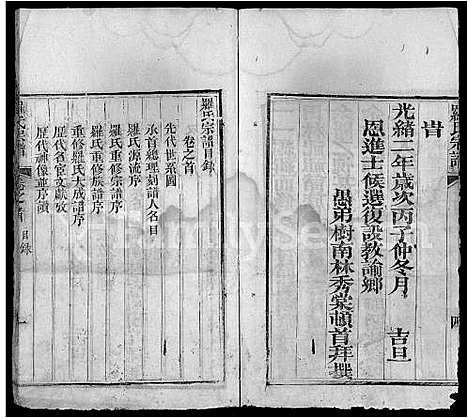 羅氏宗譜
旹
光緒二年歲次丙子仲冬月 吉旦
恩進士候選復設教諭鄉
愚弟樹南林秀棠頓首拜撰
羅氏宗譜目録
卷之首
先代世系圖
承首總理刻譜人名目
羅氏源流序
羅氏重修宗譜序
羅氏重修族譜序
重修羅氏大成譜序
歷代名宦文獻攷
歷代神像並序讀
羅氏宗譜 卷之首 目録 一
FamilySearch